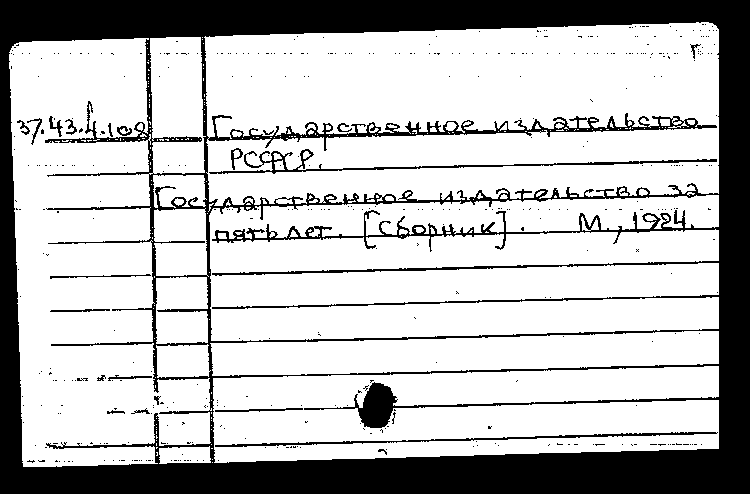 37.43.4.102 Государственное издательство
РСФСР.
Государственное издательство за
пять лет. [Сборник]. М., 1924.